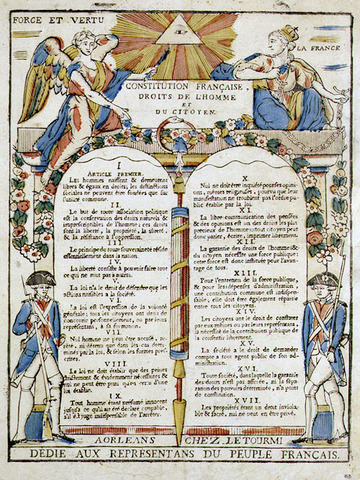 FORCE ET VERTU
LA FRANCE
CONSTITUTION FRANÇAISE.
DROITS DE L'HOMME
ET
DU CITOYEN.
I
ARTICLE PREMIER
Les hommes naissent & demeurent
libres & égaux en droits; les distinctions
sociales ne peuvent être fondées que sur
l'utilité commune.
II.
Le but de toute association politique
est la conservation des droits naturels &
imprescriptibles de l'homme; ces droits
sont la liberté, la propriété, la sûreté,
& la résistance à l'oppression.
III.
Le principe de toute souveraineté réside
essentiellement dans la nation.
IV.
La liberté consiste à pouvoir faire tout
ce qui ne nuit pas à autrui.
V.
La loi n'a le droit de défendre que les
actions nuisibles à la société.
VI.
La loi est l'expression de la volonté
générale; tous les citoyens ont droit de
concourir personnellement, ou par leurs
représentans, à sa formation.
VII.
Nul homme ne peut être accusé, arrêté,
ni détenu que dans les cas déterminés
par la loi, & selon les formes
prescrites.
VIII
La loi ne doit établir que des peines
strictement & évidemment nécessaires &
nul ne peut être puni qu'en vertu d'une
loi établie.
IX.
Tout homme étant présumé innocent
jusqu'à ce qu'il ait été déclaré coupable,
s'il est jugé indispensable de l'arrêter.
X.
Nul ne doit être inquiété pour ses opinions,
mêmes religieuses, pourvu que leur
manifestation ne troublent pas l'ordre public
établie par la loi.
XI.
La libre communication des pensées
& des opinions est un des droits les plus
précieux de l'homme; tout citoyen peut
donc parler, écrire, imprimer librement.
XII.
La garantie des droits de l'homme & du
citoyen nécessite une force publique:
cette force est donc instituée pour l'avantage
de tous.
XIII
Pour l'entretien de la force publique,
& pour les dépenses d'administration,
une contribution commune est indispensable,
elle doit être également répartie
entre tous les citoyens.
XIV.
Les citoyens ont le droit de constater
par eux mêmes ou par leurs représentans,
la nécessité de la contribution publique
XV.
La société a le droit de demander
compte à tout agent public de son administration.
XVI.
Toute société, dans laquelle la garantie
des droits n'est pas assurée, ni la séparation
des pouvoirs déterminée, n'a point
de constitution.
XVII.
Les propriétés étant un droit inviolable
& sacré, nul ne peut en être privé.
A ORLEANS CHEZ LETOURMI
DÉDIE AUX REPRESENTANS DU PEUPLE FRANÇAIS.